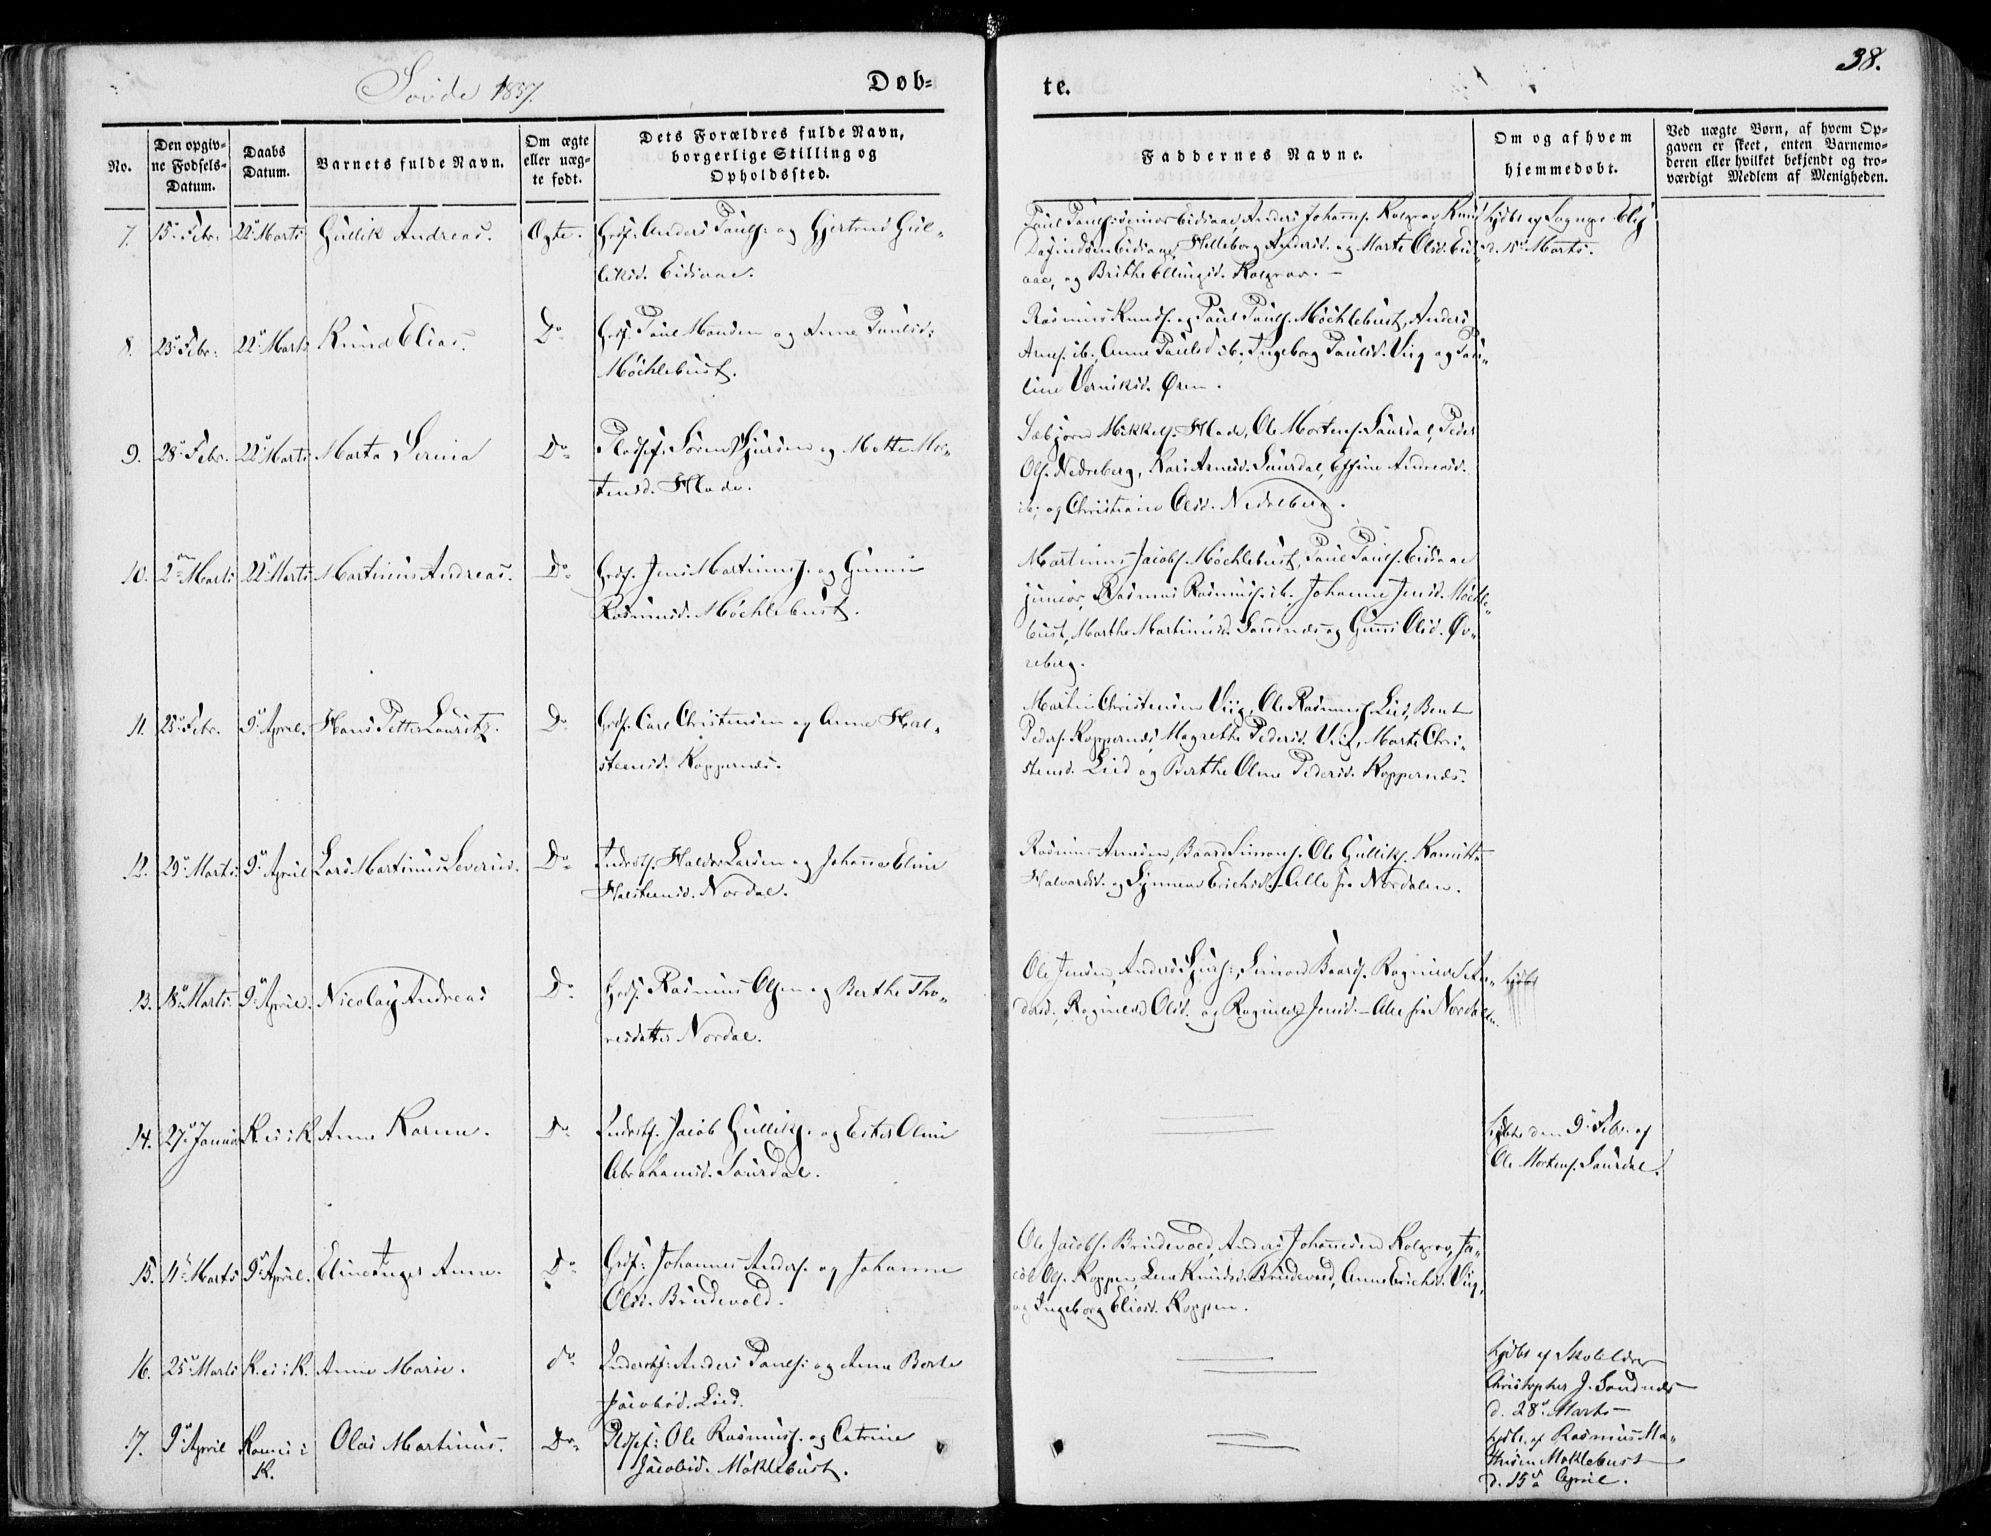 38.
Søvde 1837.
Døb-
te.
No.
Den opgiv-
ne Fødsels-
Datum.
Daabs
Datum.
Barnets fulde Navn.
Om ægte
eller uæg-
te født.
Dets Forældres fulde Navn,
borgerlige Stilling og
Opholdssted.
Faddernes Navne.
Om og af hvem
hjemmedøbt.
Ved uægte Børn, af hvem Op-
gaven er skeet, enten Barnemo-
deren eller hvilket bekjendt og tro-
værdigt Medlem af Menigheden.
7. 15. Febr. 22. Marts Gullik Andreas. Ægte. Grdf. Anders Pauls. og Gjertrud Gul-
liksd. Eidsaae.
Anders Johanns. Kolgrov, Knud
og Marte Olsd. Eids-
aae, og Brithe Ellingsd. Kolgrov.
d. 15. Marts.
8. 23. Febr. 22. Marts Knud Elias. Do Paul Knudsen og Anne Paulsd.
Møchlebust.
Rasmus Knuds. og Paul Pauls. Møchlebust, Anders
Arnes. ib., Anne Paulsd. ib., Ingeborg Paulsd. Viig og Pau-
line Øren.
9. 28. Febr. 22. Marts Marta Serina Do Pladsf. Søren Sjursen og Mette Mor-
tensd. Hlade.
Sæbjørn Mikkels. Hlade, Ole Mortens. Saurdal, Peder
Ols. Nedreberg, Kari Arnesd. Saurdal, Andersd.
ib. og Christiane Olsd. Nedreberg.
10. 2. Marts 22. Marts Martinus Andreas. Do Grdf. Jens Martinus. og Gunni
Rasmusd. Møchlebust.
Martinus Jacobs. Møchlebust, Paul Pauls. Eidsaae
junior, Rasmus Rasmus. ib., Johanne Jensd. Møchle-
bust, Marthe Martinusd. Sandnæs og Gunni Olsd. Øv-
reberg.
11. 25. Febr. 9. April. Hans Petter Lauritz. Do Grdf. Carl Christensen og Anne Hal-
steensd. Koppernæs.
Martin Christensen Viig, Ole Rasmus. Lied, Bent
Peders. Koppernæs, Magrethe Pedersd. Viig, Marte Chri-
stensd. Lied og Berthe Oline Pedersd. Koppernæs.
12. 29. Marts 9. April Lars Martinus Severin. Do Inderstf. Halder Larsen og Johanne Eline
Halsteensd. Nordal.
Rasmus Arnesen, Baard Simons. Ole Gulliks.
Halvorsd. og Synneve Erichsd. Alle fra Nordalen.
13. 18. Marts 9. April. Nicolay Andreas Do Grdf. Rasmus Olsen og Berthe Tho-
resdatter Nordal.
Ole Jensen, Anders Sjurs:, Simon Baards. Ragnild An-
dersd., Ragnild Olsd. og Ragnild Jensd. – Alle fra Nordalen.
hjdbt
14. 27. Januar K. ei i K. Anne Karine. Do Inderstf. Jacob Gulliks. og Ester Oline
Abrahamsd. Saurdal.
hjdbt den 9. Febr. af
Ole Mortens. Saurdal.
15. 11. Marts 9. April. Eline Inger Anne. Do Grdf: Johannes Anders. og Johanne
Olsd. Brudevold.
Ole Jacobs. Brudevold, Anders Johannesen Kolgrov, Ja-
cob Ols. Koppen, Lene Knudsd. Brudevold, Anne Erichsd. Viig,
og Ingeborg Eliasd. Koppen.
16. 25. Marts K. ei i K. Anne Marie. do Inderstf: Anders Pauls: og Anne Berte
Jacobsd. Lied.
hjdbt af Skolelærer
Christopher J. Sandnæs
d. 28. Marts
17. 9. April Kom ei i
K.
Olai Martinus. Do Pldsf: Ole Rasmus. og Catrine
Jacobsd. Møklebust.
hjdbt. af Rasmus Ma-
thisen Møklebust
d. 15. April.